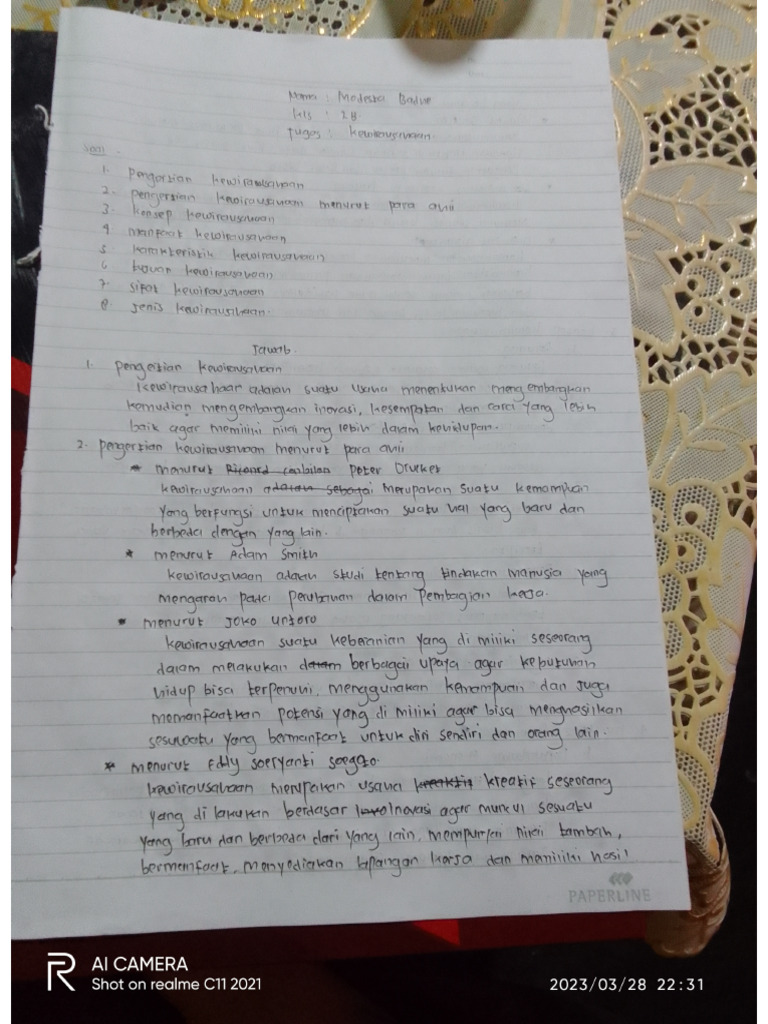 Nama : Modesta Badur
kls : 2B
Tugas : kewirausahaan
Soal .
1. pengertian kewirausahaan
2. pengertian kewirausahaan menurut para ahli
3. konsep kewirausahaan
4 manfaat kewirausahaan
5. karakteristik kewirausahaan
6 tujuan kewirausahaan
7. sifat kewirausahaan
8 jenis kewirausahaan.
Jawab.
1. pengertian kewirausahaan
kewirausahaan adalah suatu usaha menentukan mengembangkan
kemudian mengembangkan inovasi, kesempatan dan cara yang lebih
baik agar memiliki nilai yang lebih dalam kehidupan.
2. pengertian kewirausahaan menurut para ahli
* menurut Ricard Peter Drucker
kewirausahaan adalah sebagai merupakan suatu kemampuan
yang berfungsi untuk menciptakan suatu hal yang baru dan
berbeda dengan yang lain.
* menurut Adam Smith
kewirausahaan adalah studi tentang tindakan manusia yang
mengarah pada perubahan dalam Pembagian kerja.
* menurut Joko untoro
kewirausahaan suatu keberanian yang di miliki seseorang
dalam melakukan dalam berbagai upaya agar kebutuhan
hidup bisa terpenuhi, menggunakan kemampuan dan juga
memanfaatkan potensi yang di miliki agar bisa menghasilkan
sesuatu yang bermanfaat untuk diri sendiri dan orang lain.
* menurut Eddy soeryanto soegoto.
kewirausahaan merupakan usaha kreatif seseorang
yang di lakukan berdasar Inovasi agar muncul sesuatu
yang baru dan berbeda dari yang lain, mempunyai nilai tambah,
bermanfaat, menyediakan lapangan kerja dan memiliki hasil
PAPERLINE
AI CAMERA
Shot on realme C11 2021
2023/03/28 22:31